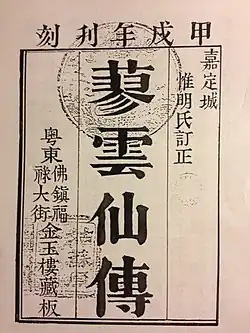 甲戌年刊刻
嘉定城
惟明氏訂正
蓼雲仙傳
粵東佛鎮福
祿大街金玉樓藏板